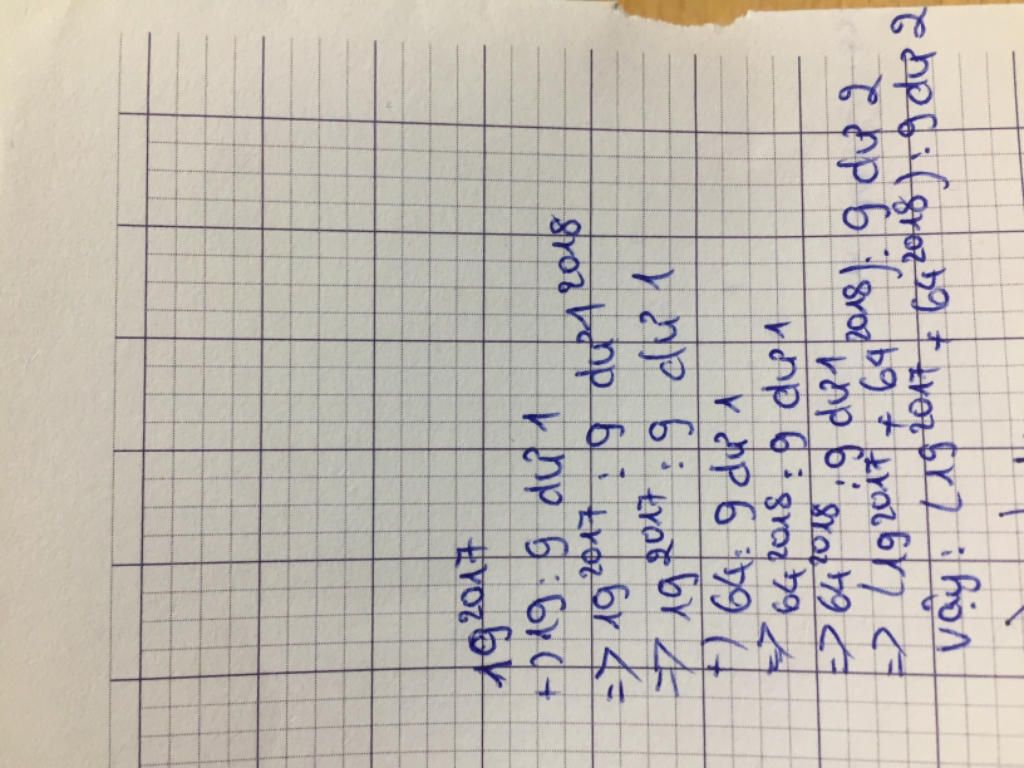 19²⁰¹⁷
+) 19 : 9 dư 1
=> 19²⁰¹⁷ : 9 dư 1²⁰¹⁸
=> 19²⁰¹⁷ : 9 dư 1
+) 64 : 9 dư 1
=> 64²⁰¹⁸ : 9 dư 1
=> 64²⁰¹⁸ : 9 dư 1
=> (19²⁰¹⁷ + 64²⁰¹⁸) : 9 dư 2
Vậy : (19²⁰¹⁷ + 64²⁰¹⁸) : 9 dư 2